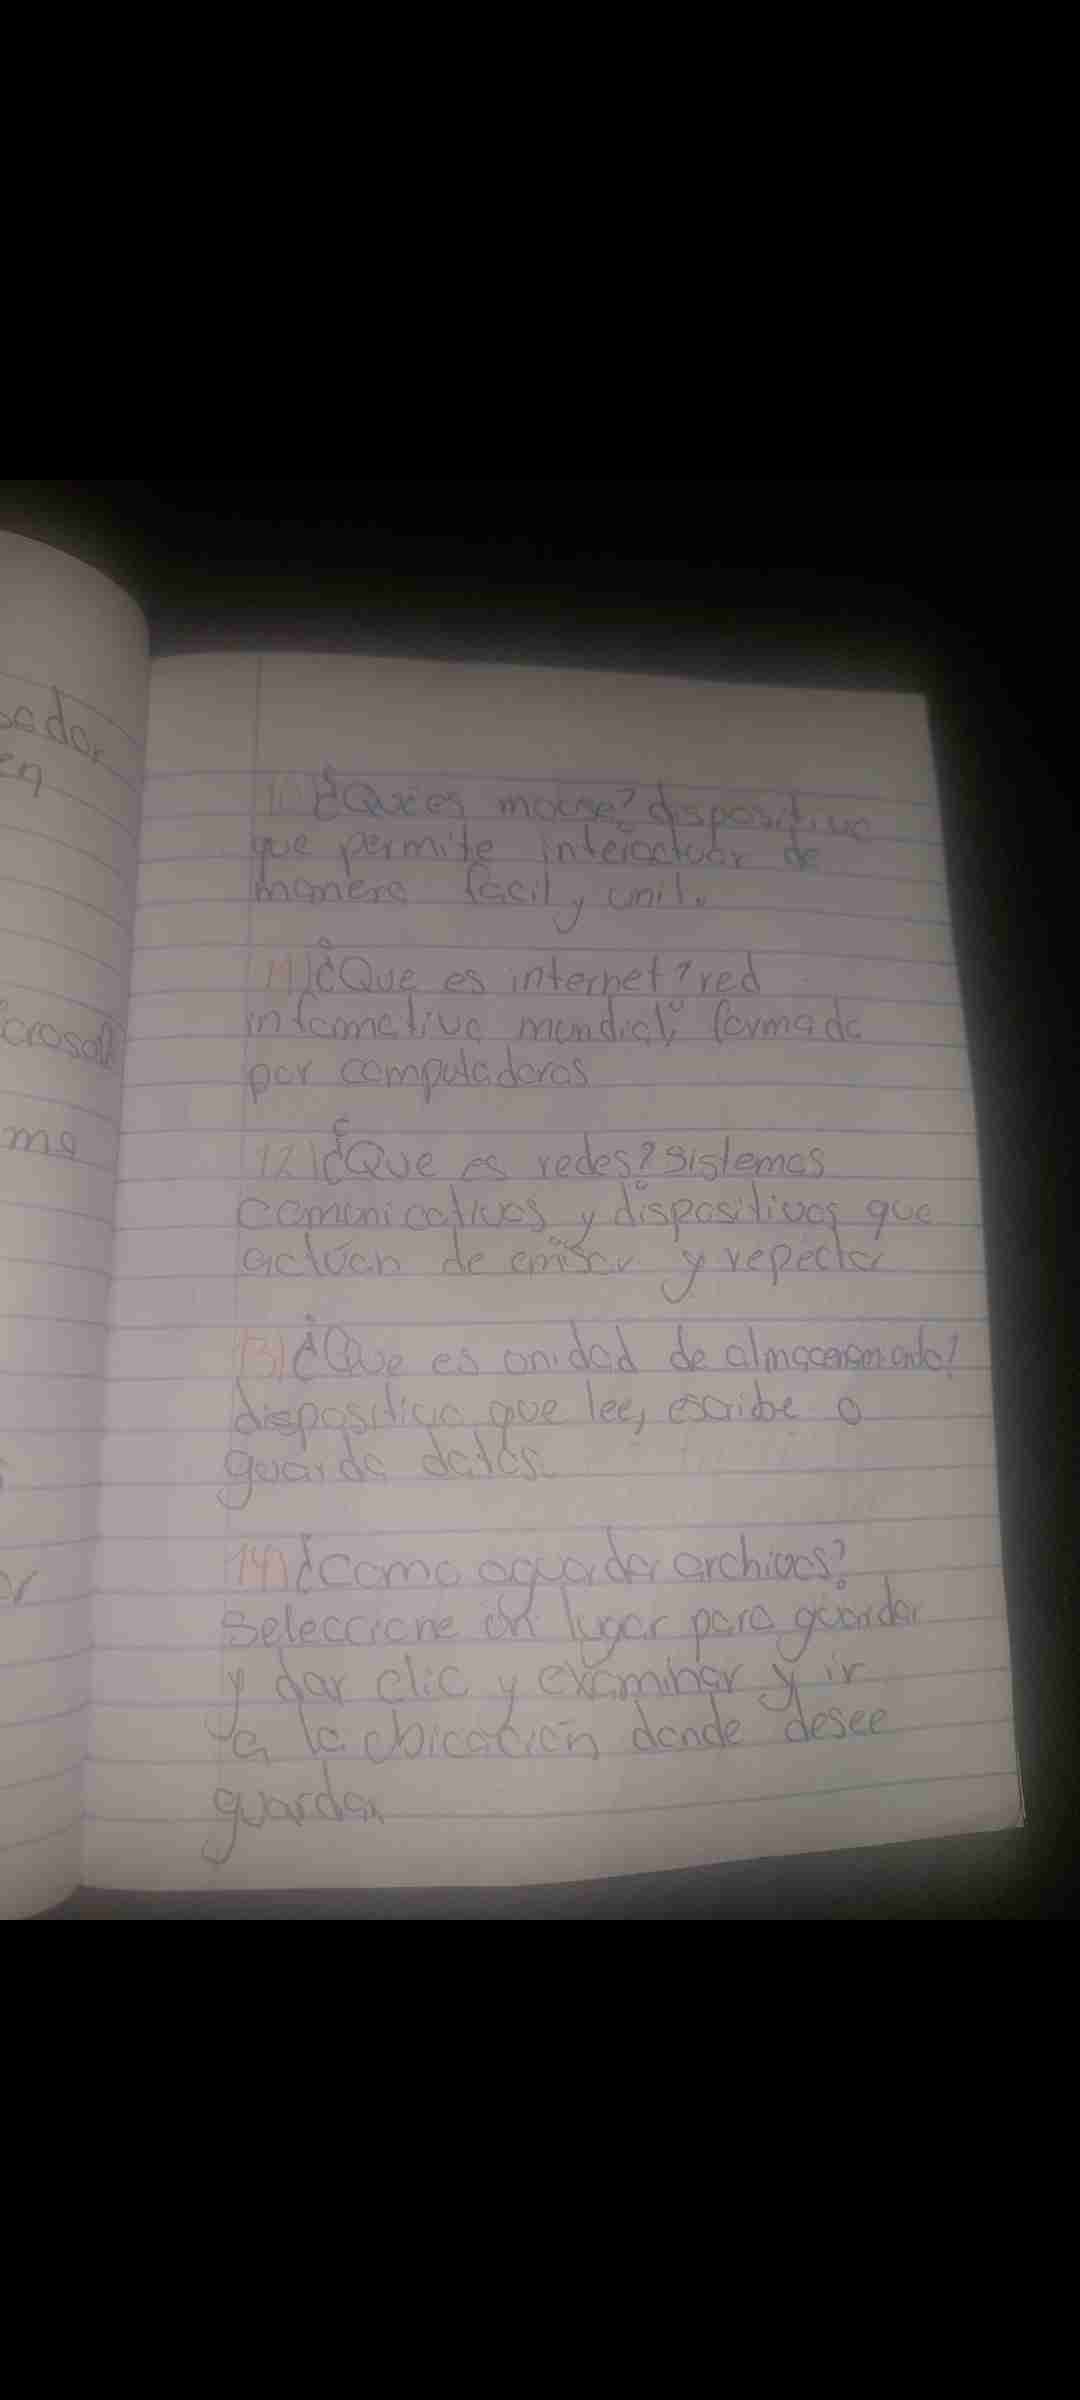 sador
en
crosoft
ma
or
10) ¿Que es mouse? dispositivo
que permite interactuar de
manera facil y unil.
11) ¿Que es internet? red
infomativa mundial, formada
por computadoras
12) ¿Que es redes? sistemas
comunicativos y dispositivos que
actúan de emisor y repector
13) ¿Que es unidad de almacenamiento?
dispositivo que lee, escribe o
guarda datos.
14) ¿como aguardar archivos?
Seleccione un lugar para guardar
y dar clic y examinar y ir
a la ubicación donde desee
guardar